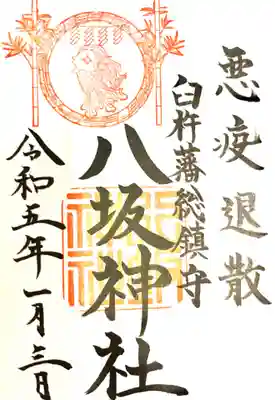 悪疫退散
臼杵藩総鎮守
八坂神社
令和五年一月三日